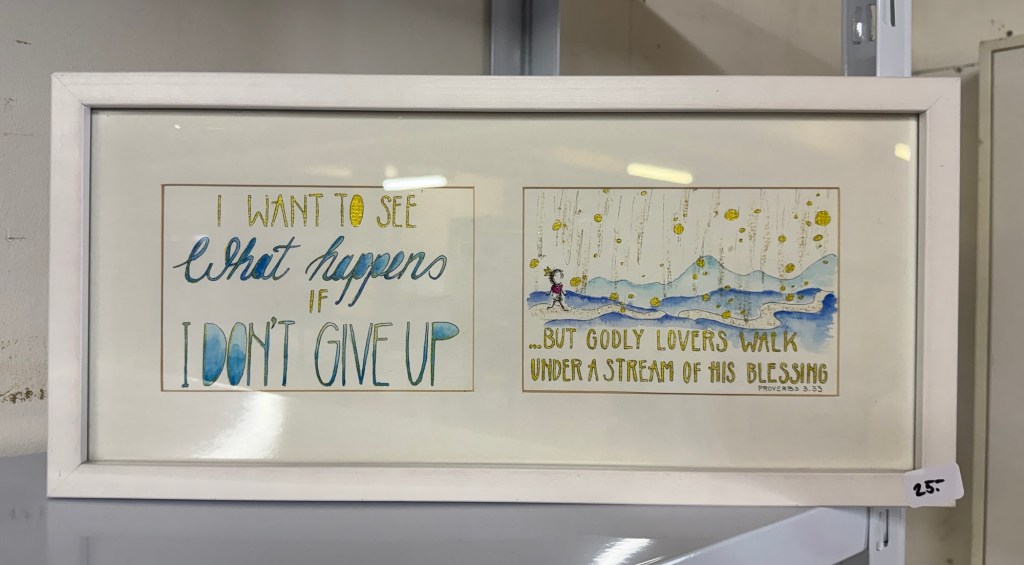 I WANT TO SEE
What happens
IF
I DON'T GIVE UP
...BUT GODLY LOVERS WALK
UNDER A STREAM OF HIS BLESSING
PROVERBS 3.33
25.-